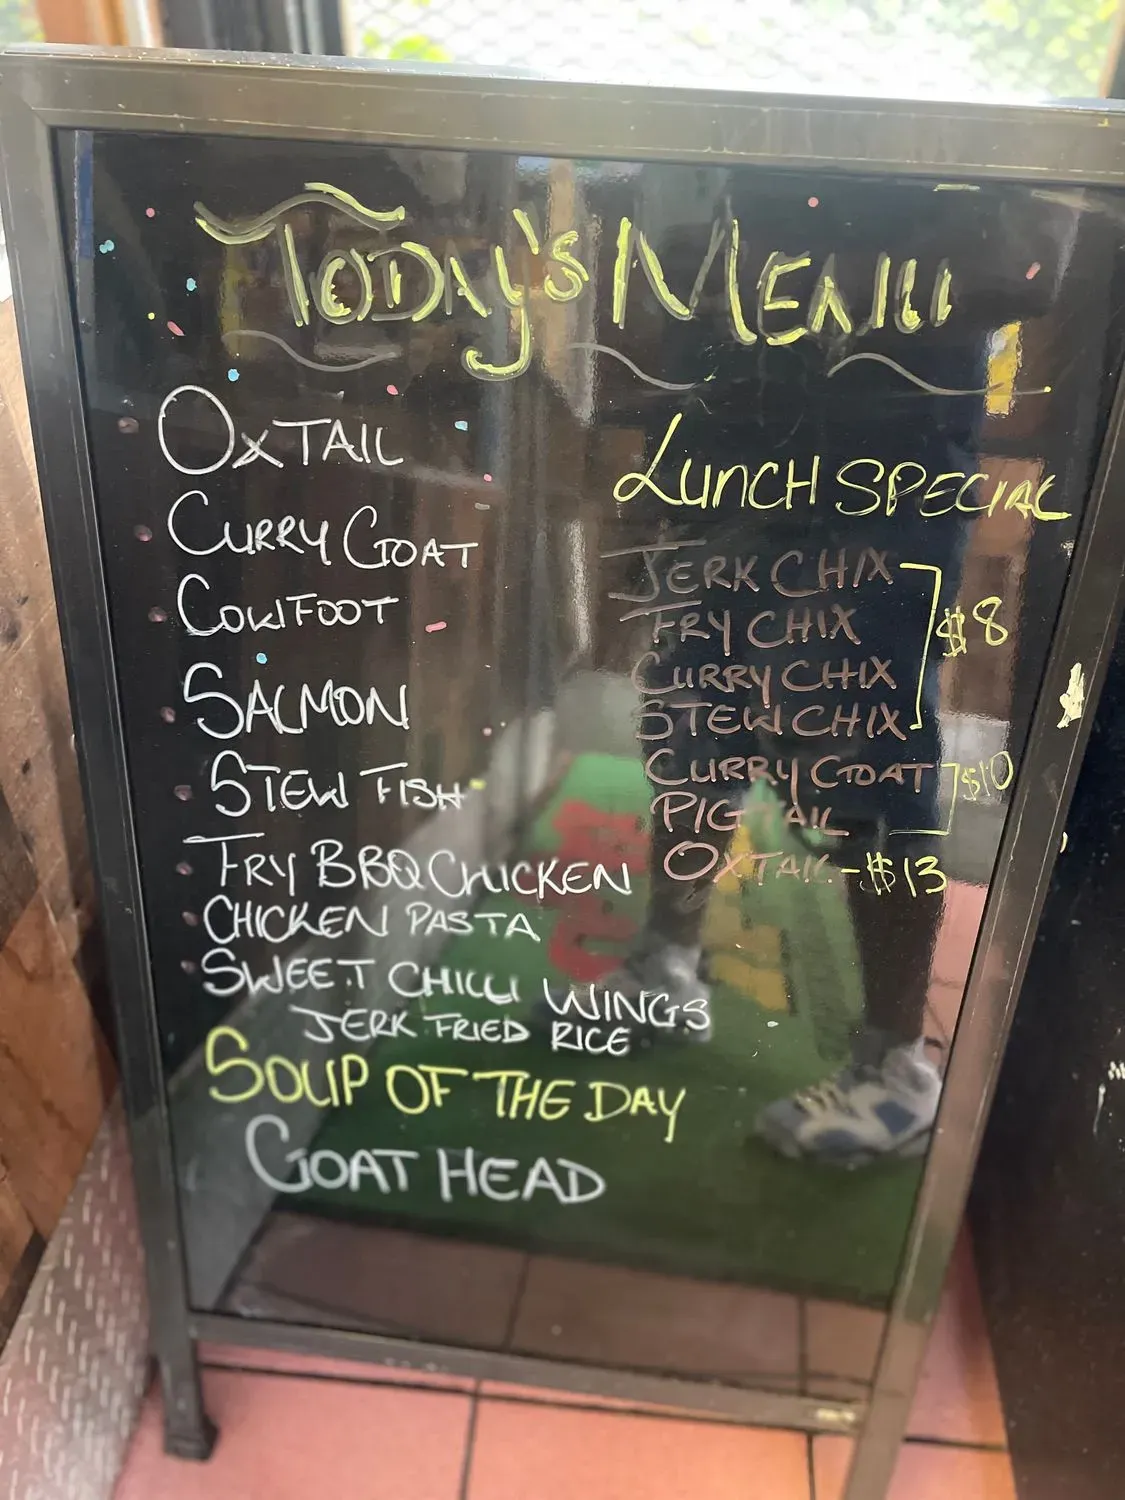 Today's Menu
Oxtail
Curry Goat
Cowfoot
Salmon
Stew Fish
Fry BBQ Chicken
Chicken Pasta
Sweet Chilli Wings
Jerk Fried Rice
Soup of the Day
Goat Head
Lunch Special
Jerk Chix
Fry Chix
Curry Chix
Stew Chix
$8
Curry Goat
Pigtail
$10
Oxtail - $13